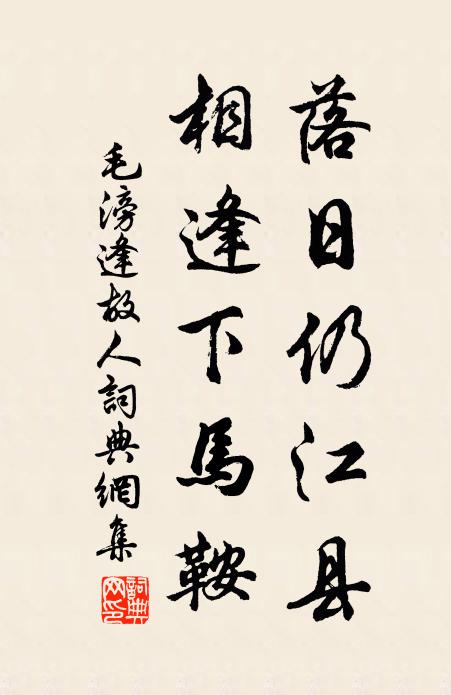 落日仍江县
相逢下馬鞍
毛滂逢故人詞典網集
詞典網印